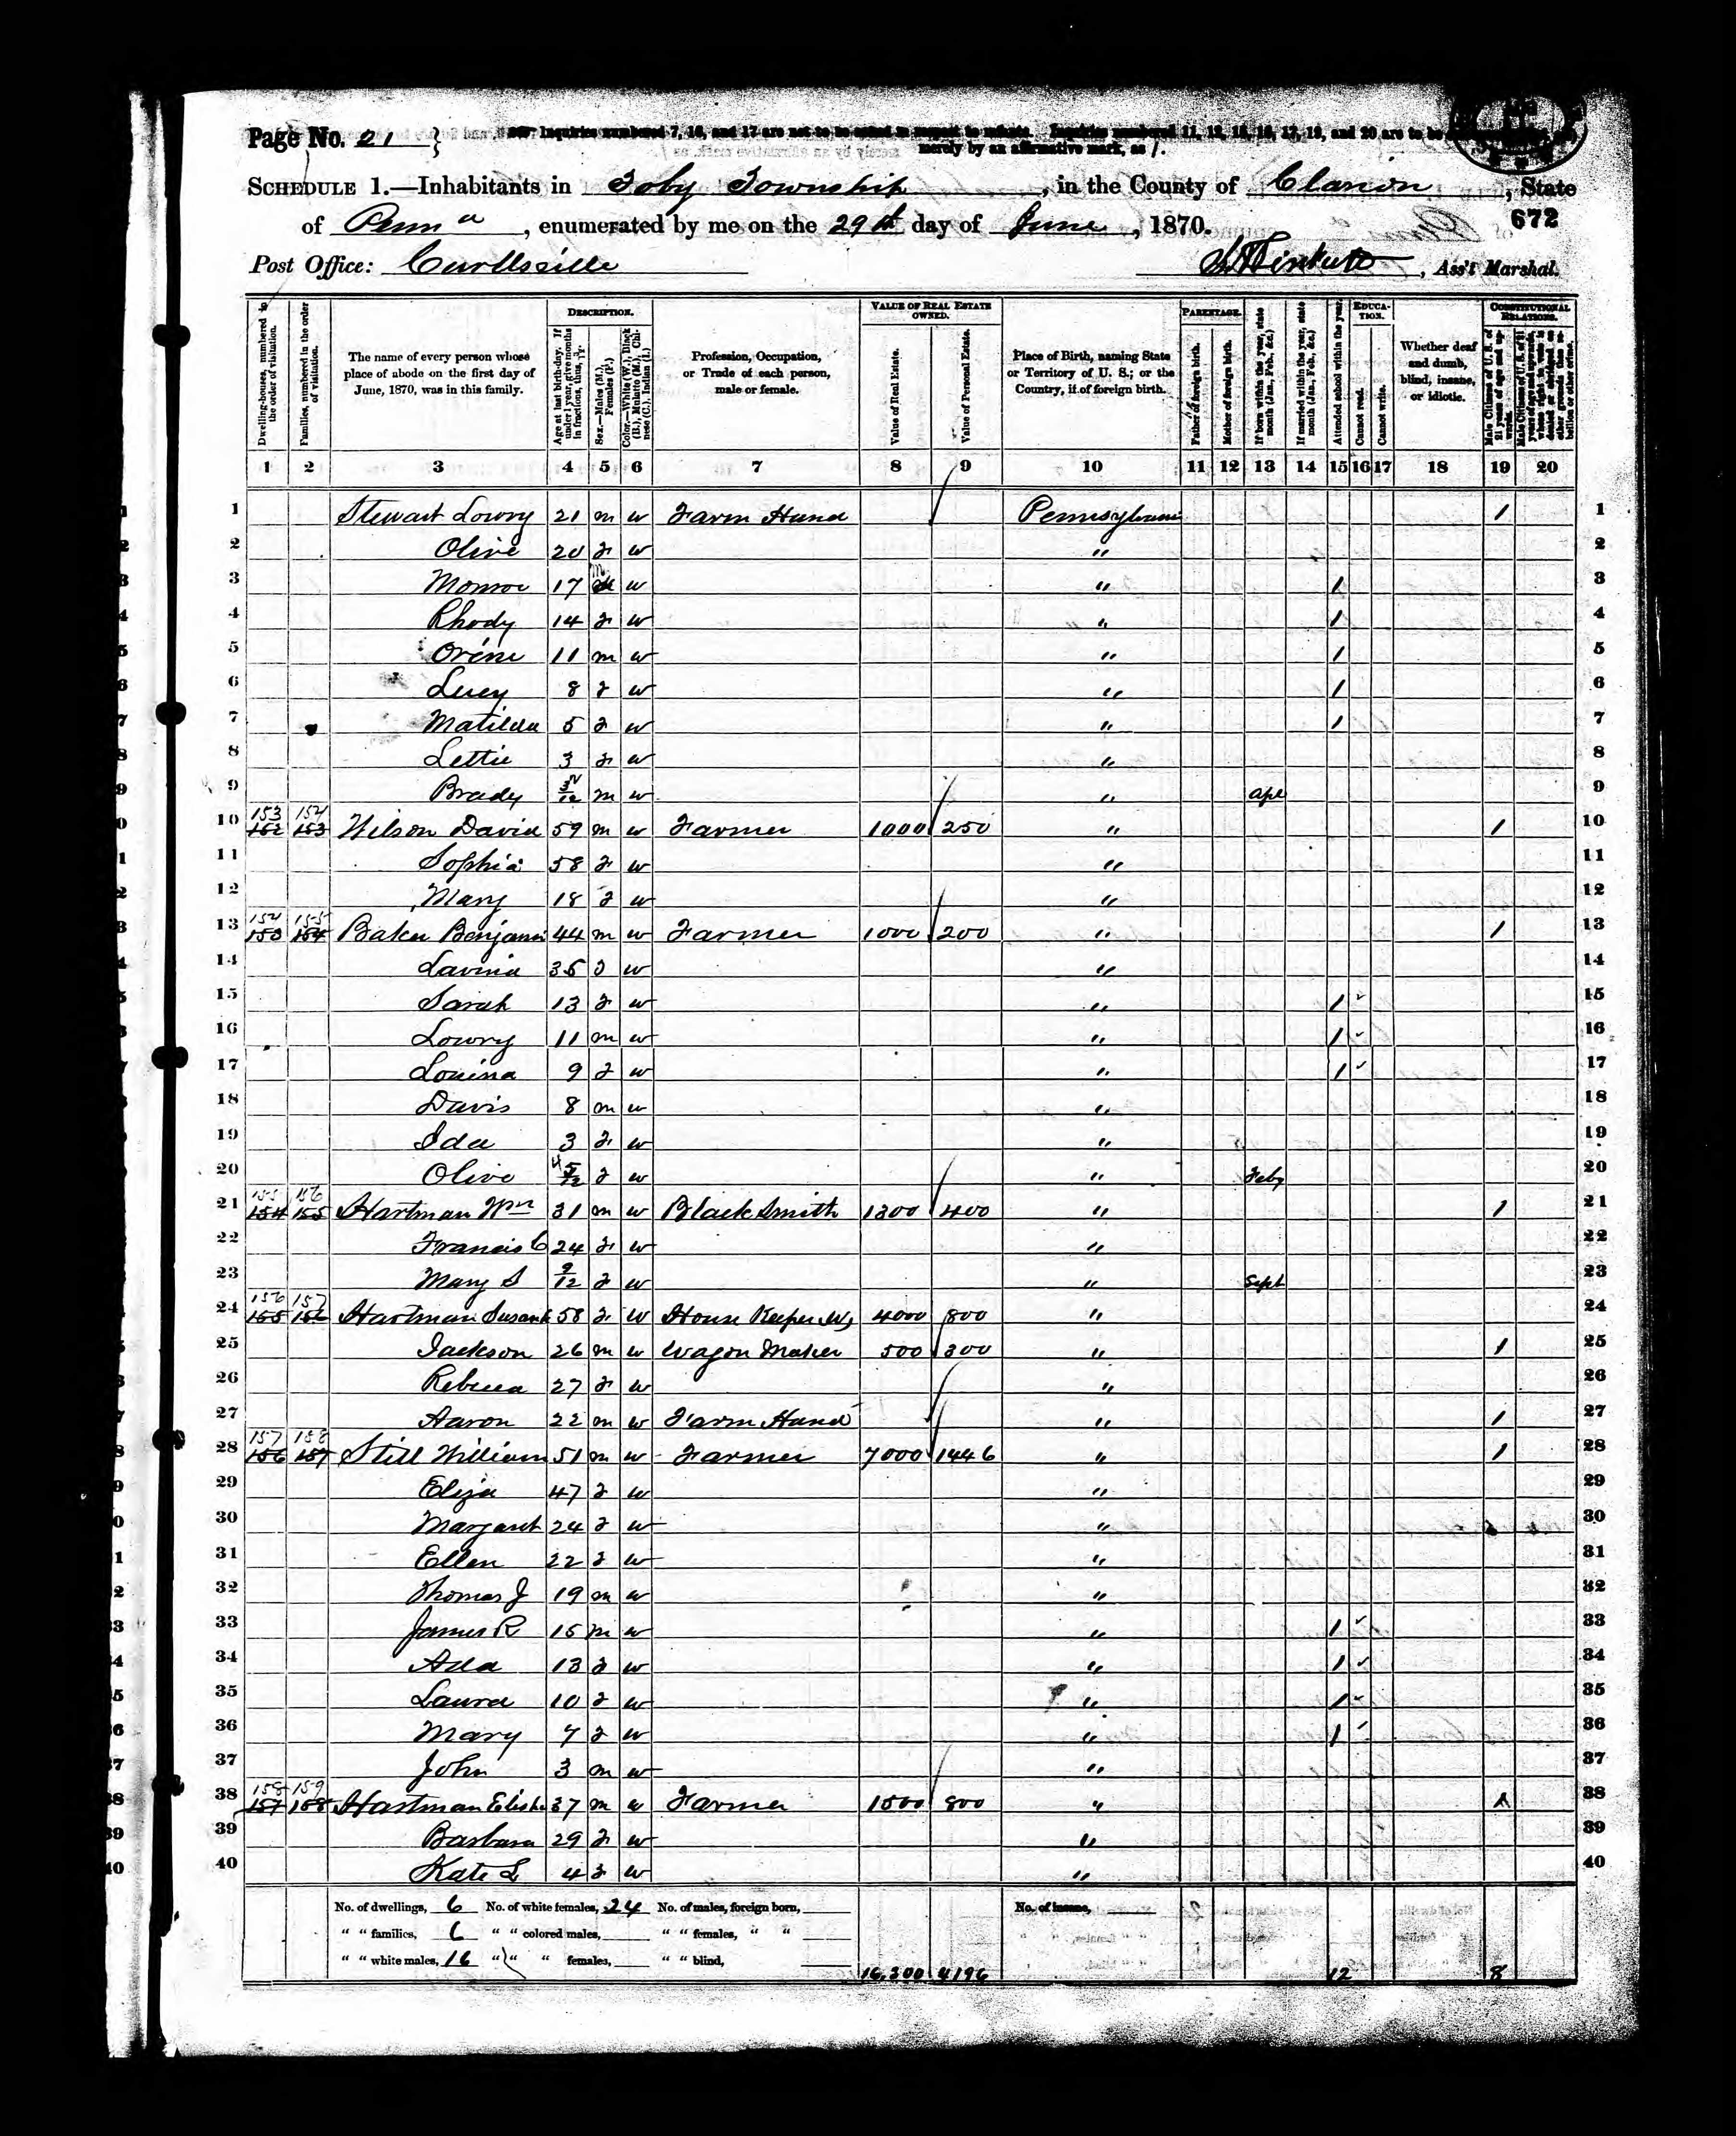 Page No. 21
Inquiries numbered 7, 16, and 17 are not to be asked in respect to infants. Inquiries numbered 11, 12, 15, 16, 17, 19, and 20 are to be
merely by an affirmative mark, as /.
SCHEDULE 1.—Inhabitants in Toby Township, in the County of Clarion, State
of Penna, enumerated by me on the 29th day of June, 1870. 672
Post Office: Curllsville Ass't Marshal.
DESCRIPTION. VALUE OF REAL ESTATE OWNED. PARENTAGE. EDUCATION. CONSTITUTIONAL RELATIONS.
Dwelling-houses, numbered in the order of visitation.
Families, numbered in the order of visitation.
The name of every person whose place of abode on the first day of June, 1870, was in this family.
Age at last birth-day. If under 1 year, give months in fractions, thus, 3/12.
Sex.—Males (M.), Females (F.)
Color.—White (W.), Black (B.), Mulatto (M.), Chinese (C.), Indian (I.)
Profession, Occupation, or Trade of each person, male or female.
Value of Real Estate.
Value of Personal Estate.
Place of Birth, naming State or Territory of U. S.; or the Country, if of foreign birth.
Father of foreign birth.
Mother of foreign birth.
If born within the year, state month (Jan., Feb., &c.)
If married within the year, state month (Jan., Feb., &c.)
Attended school within the year.
Cannot read.
Cannot write.
Whether deaf and dumb, blind, insane, or idiotic.
Male Citizens of U. S. of 21 years of age and upwards.
Male Citizens of U. S. of 21 years of age and upwards, whose right to vote is denied or abridged on other grounds than rebellion or other crime.
1 2 3 4 5 6 7 8 9 10 11 12 13 14 15 16 17 18 19 20
1 Stewart Lowry 21 m w Farm Hand Pennsylvania 1 1
2 Olive 20 f w " 2
3 Monroe 17 m w " 1 3
4 Rhody 14 f w " 1 4
5 Orine 11 m w " 1 5
6 Lucy 8 f w " 1 6
7 Matilda 5 f w " 1 7
8 Lettie 3 f w " 8
9 Brady 3/12 m w " Apl 9
153 154
10 152 153 Wilson David 59 m w Farmer 1000 250 " 1 10
11 Sophia 58 f w " 11
12 Mary 18 f w " 12
154 155
13 153 154 Baker Benjamin 44 m w Farmer 1000 200 " 1 13
14 Lavina 35 f w " 14
15 Sarah 13 f w " 1 15
16 Lowry 11 m w " 1 16
17 Louina 9 f w " 1 17
18 Davis 8 m w " 18
19 Ida 3 f w " 19
20 Olive 4 5/12 f w " Feby 20
155 156
21 154 155 Hartman Wm 31 m w Black Smith 1300 400 " 1 21
22 Francis C 24 f w " 22
23 Mary S 9/12 f w " Sept 23
156 157
24 155 156 Hartman Susanh 58 f w House Keeper 4000 800 " 24
25 Jackson 26 m w Wagon Maker 500 300 " 1 25
26 Rebecca 27 f w " 26
27 Aaron 22 m w Farm Hand " 1 27
157 158
28 156 157 Still William 51 m w Farmer 7000 1446 " 1 28
29 Eliza 47 f w " 29
30 Margaret 24 f w " 30
31 Ellen 22 f w " 31
32 Thomas J 19 m w " 32
33 James R 15 m w " 1 33
34 Ada 13 f w " 1 34
35 Laura 10 f w " 1 35
36 Mary 7 f w " 1 36
37 John 3 m w " 37
158 159
38 157 158 Hartman Elisha 37 m w Farmer 1500 800 " 1 38
39 Barbara 29 f w " 39
40 Kate L 4 f w " 40
No. of dwellings, 6 No. of white females, 24 No. of males, foreign born, No. of insane,
" " families, 6 " " colored males, " " females, " "
" " white males, 16 " " " females, " " blind,
16.300 4196 12 8